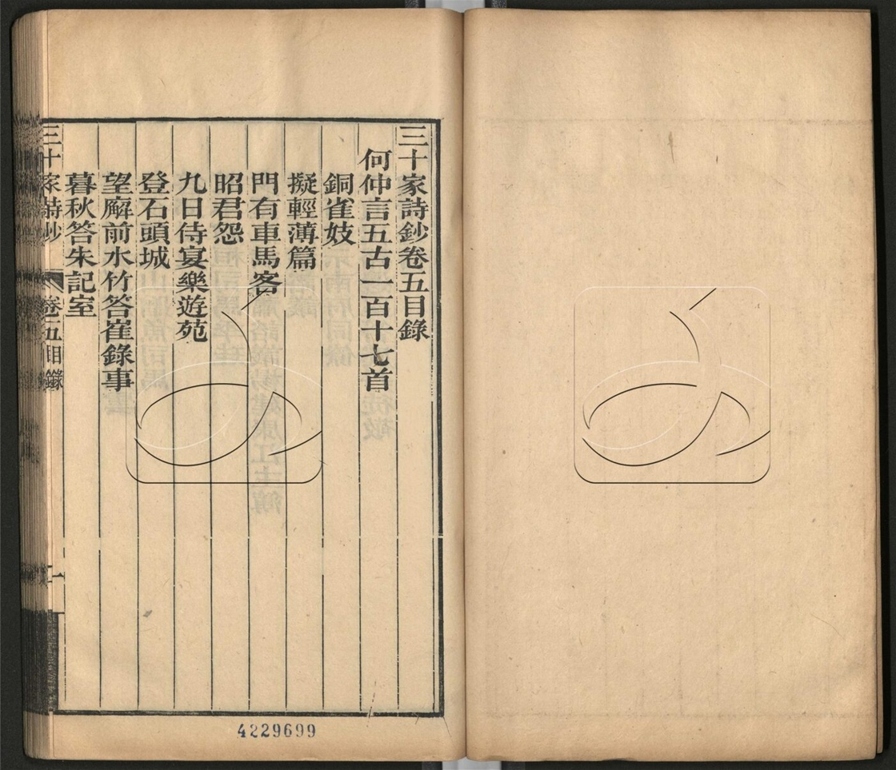 三十家詩鈔卷五目錄
何仲言五古一百十七首
銅雀妓
擬輕薄篇
門有車馬客
昭君怨
九日侍宴樂遊苑
登石頭城
望廨前水竹答崔錄事
暮秋答朱記室
三十家詩鈔 卷五目錄 一
4229699